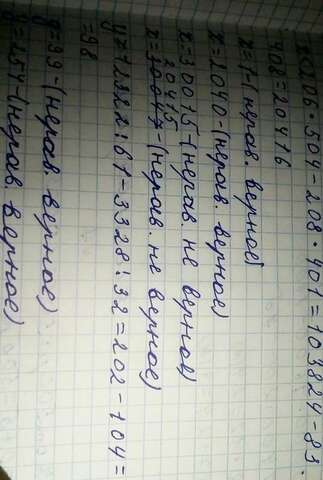 x<206·504-208·401=103824-83·
408=20416
x=1-(нерав. верное)
x=2040-(нерав. верное)
x=30015-(нерав. не верное)
20415
x=-(нерав. не верное)
y>12322:61-3328:32=202-104=
=98
y=99-(нерав. верное)
y=254-(нерав. верное)